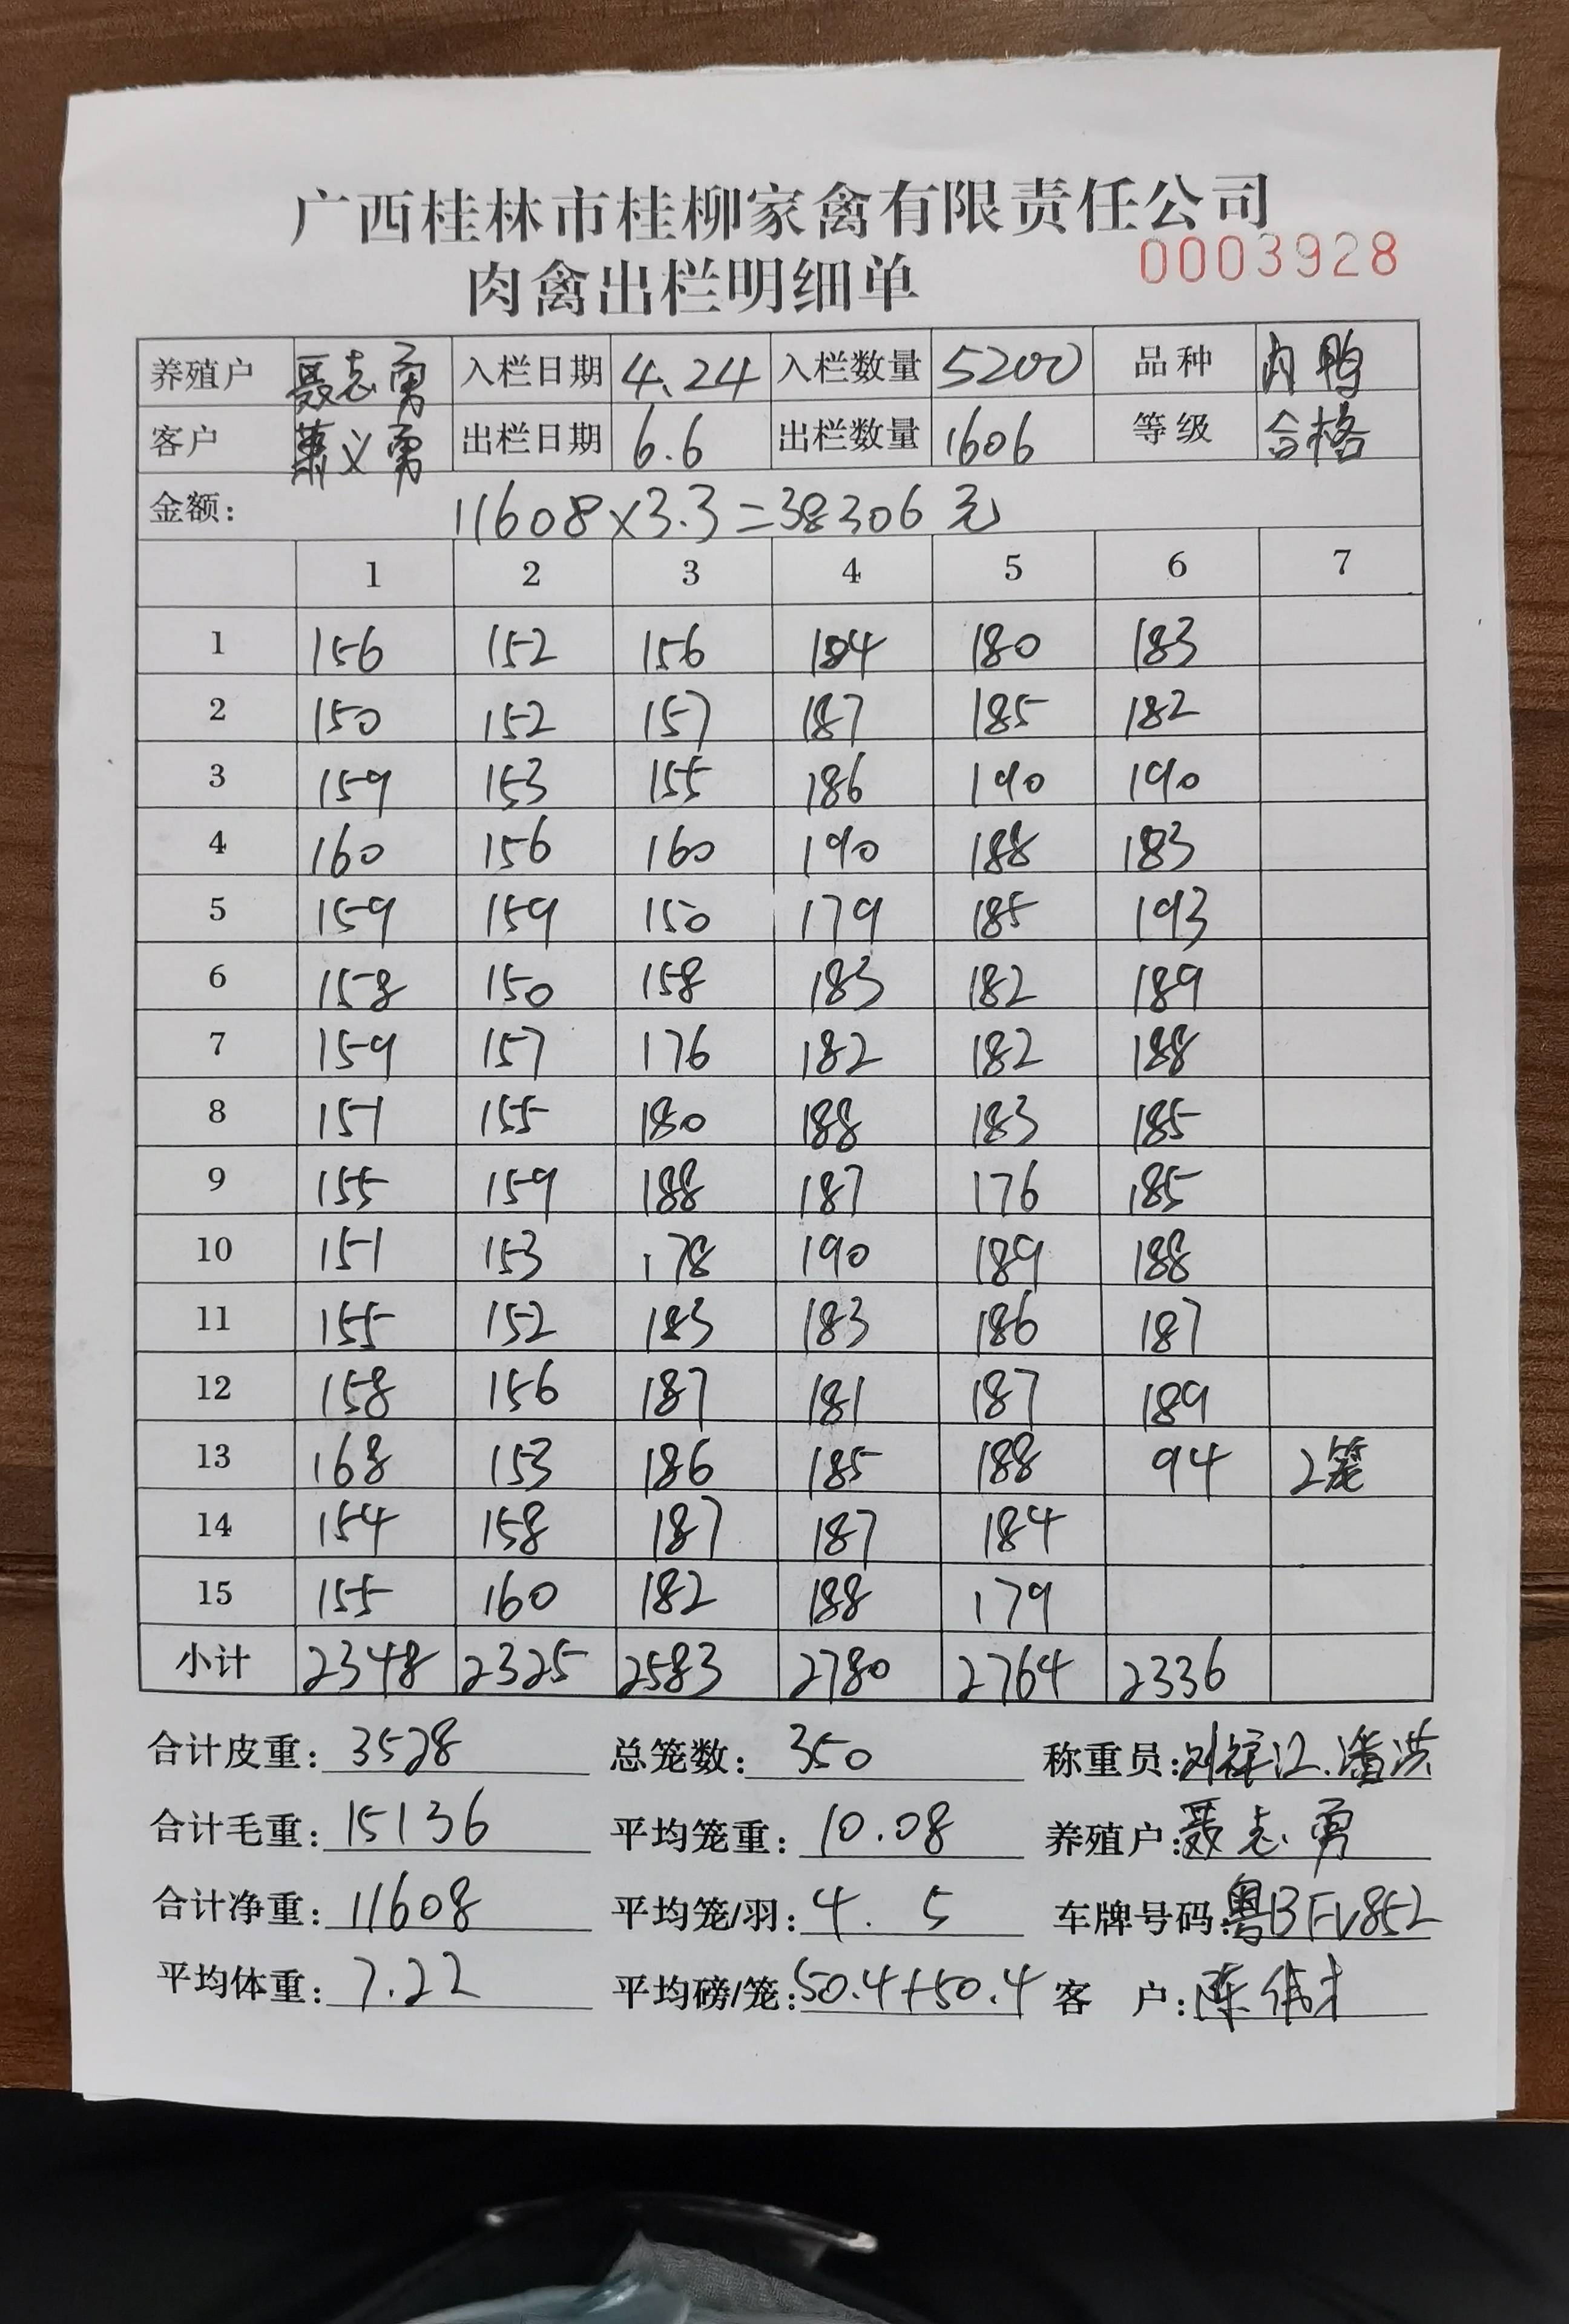 广西桂林市桂柳家禽有限责任公司
0003928
肉禽出栏明细单
养殖户 聂志勇 入栏日期 4.24 入栏数量 5200 品种 肉鸭
客户 萧义勇 出栏日期 6.6 出栏数量 1606 等级 合格
金额: 11608×3.3=38306元
1 2 3 4 5 6 7
1 156 152 156 184 180 183
2 150 152 157 187 185 182
3 159 153 155 186 190 190
4 160 156 160 190 188 183
5 159 159 150 179 185 193
6 158 150 158 183 182 189
7 159 157 176 182 182 188
8 151 155 180 188 183 185
9 155 159 188 187 176 185
10 151 153 178 190 189 188
11 155 152 183 183 186 187
12 158 156 187 181 187 189
13 168 153 186 185 188 94 2笼
14 154 158 187 187 184
15 155 160 182 188 179
小计 2348 2325 2583 2780 2764 2336
合计皮重: 3528 总笼数: 350 称重员: 江.潘洪
合计毛重: 15136 平均笼重: 10.08 养殖户: 聂志勇
合计净重: 11608 平均笼/羽: 4. 5 车牌号码: 粤BFV852
平均体重: 7.22 平均磅/笼: 50.4+50.4 客 户: 陈伟才